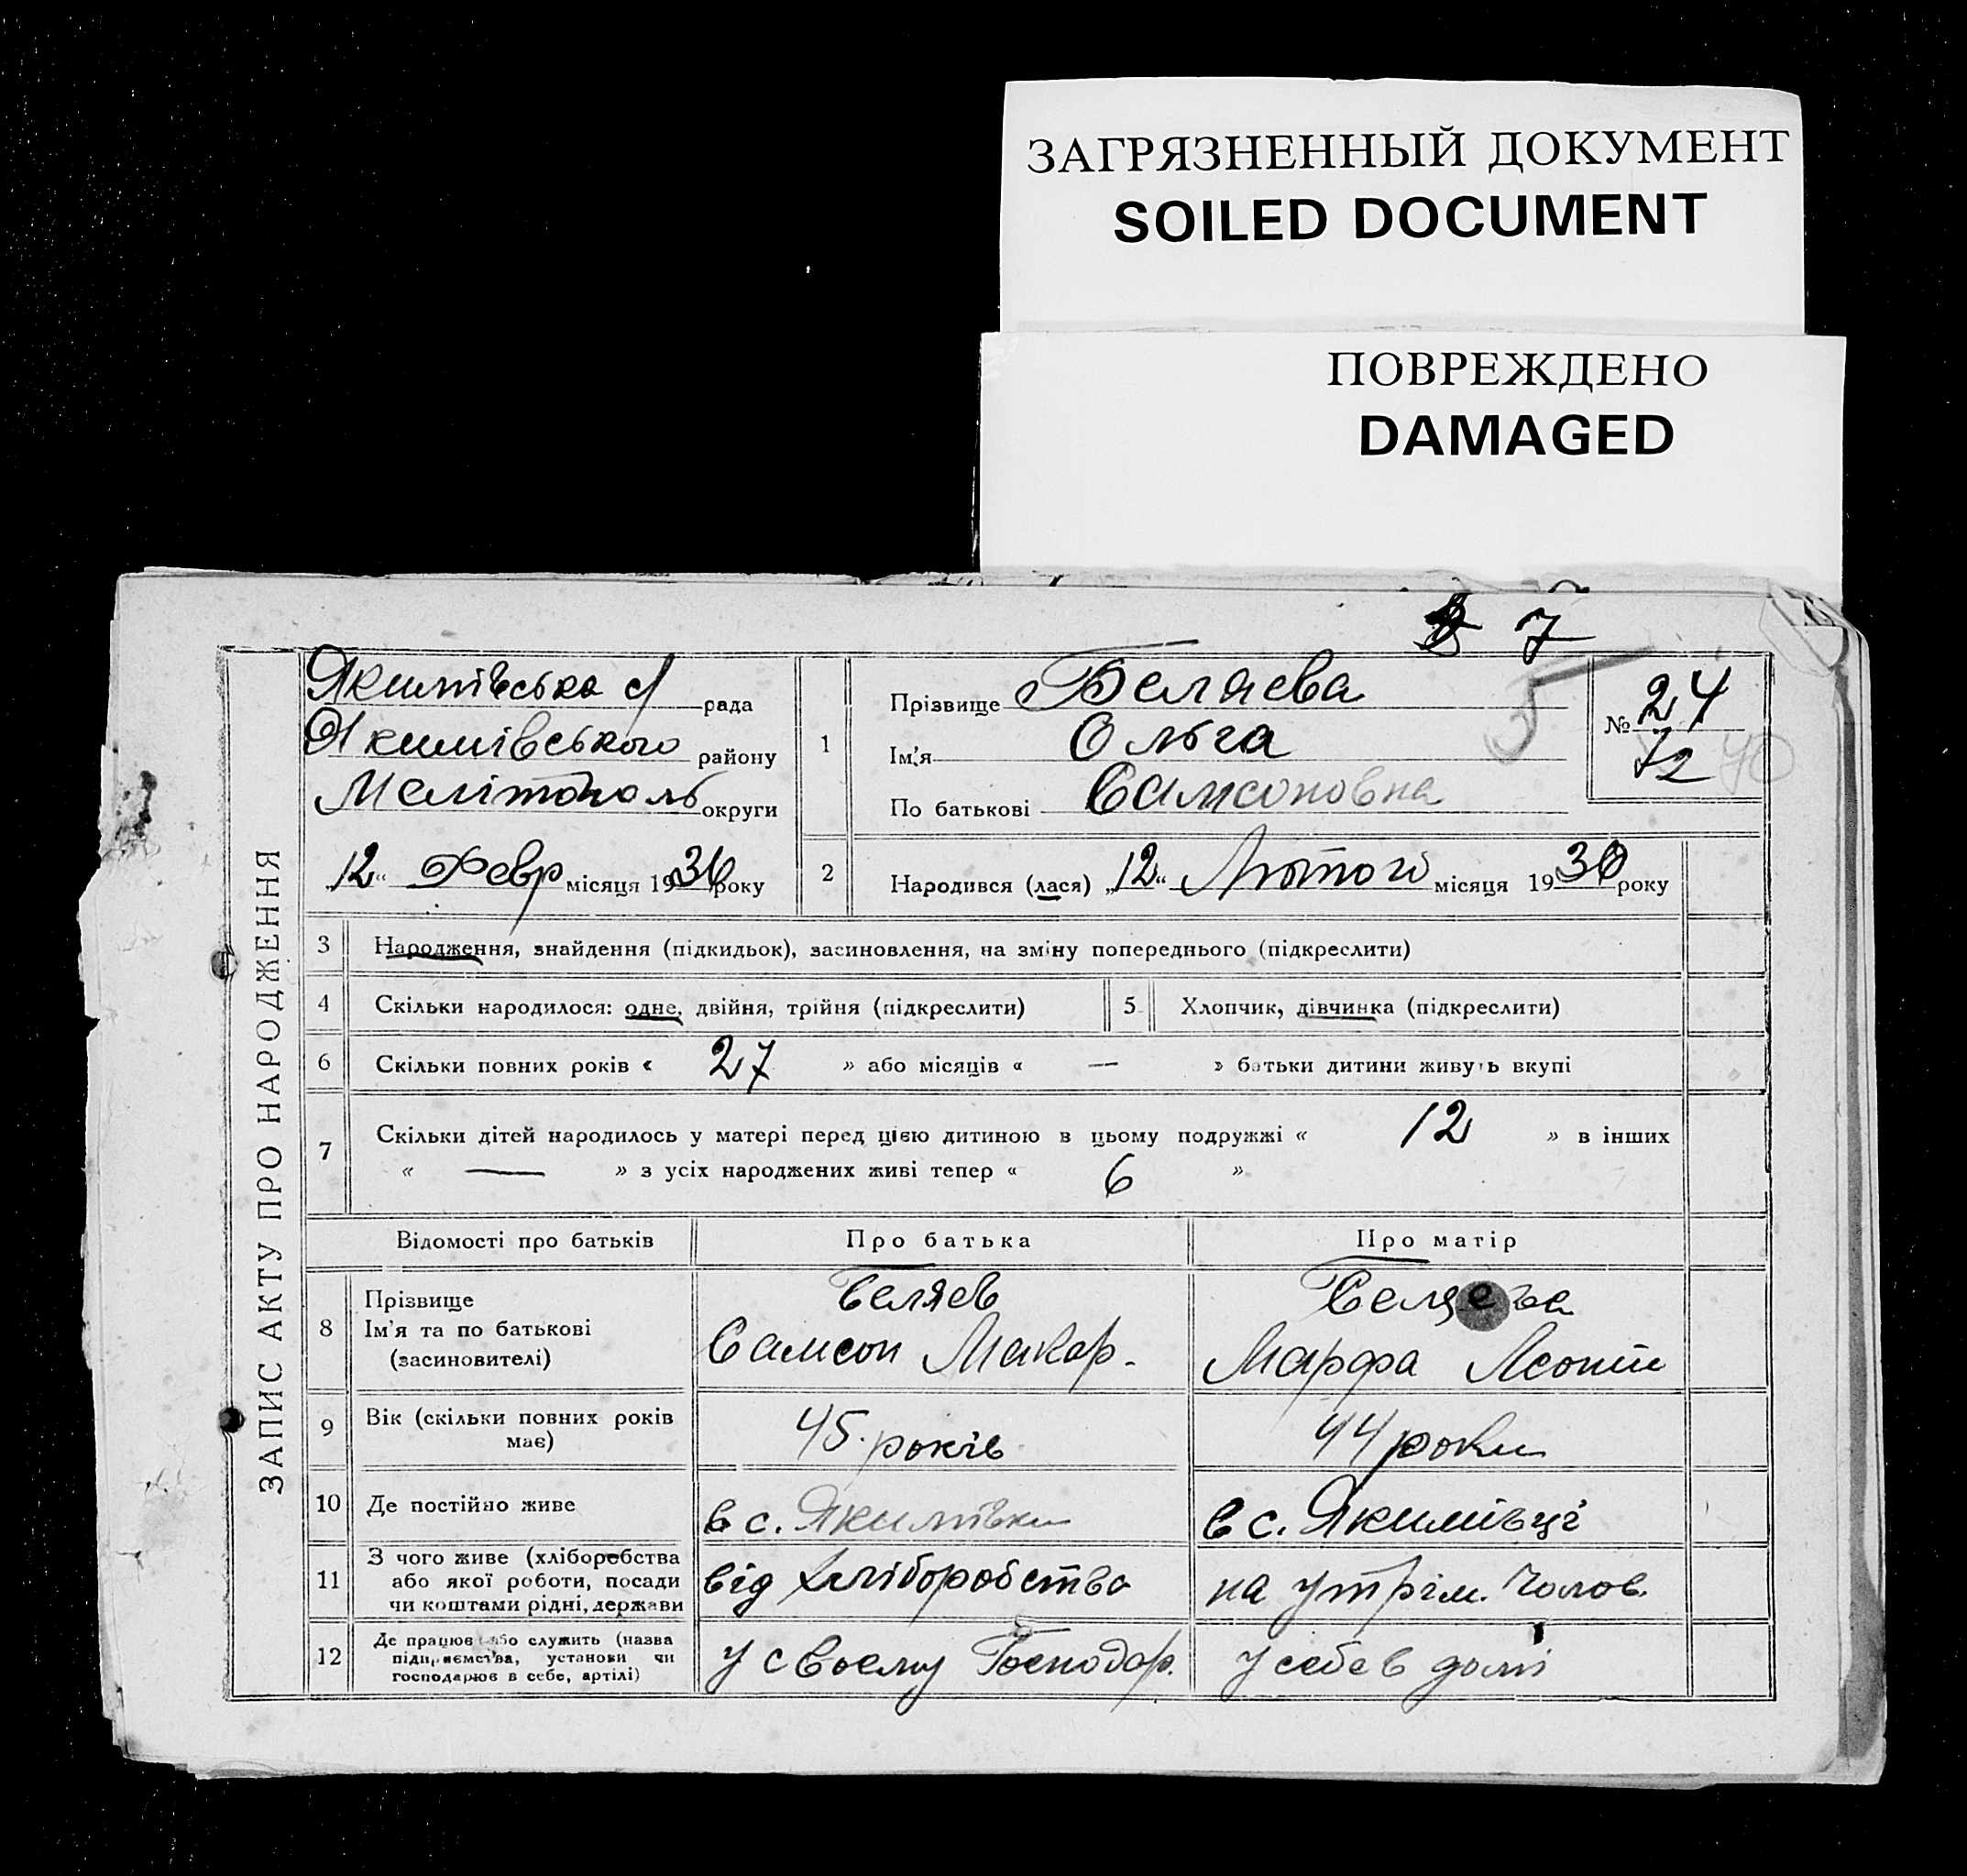 ЗАГРЯЗНЕННЫЙ ДОКУМЕНТ
SOILED DOCUMENT
ПОВРЕЖДЕНО
DAMAGED
7
5
ЗАПИС АКТУ ПРО НАРОДЖЕННЯ
Якимівська с/ рада
Якимівського району
Мелітополь округи
„12“ Февр місяця 1930 року
1
Прізвище Беляева
Ім'я Ольга
По батькові Самсоновна
№ 24
72 70
2 Народився (лася) „12“ Лютого місяця 1930 року
3 Народження, знайдення (підкидьок), засиновлення, на зміну попереднього (підкреслити)
4 Скільки народилося: одне, двійня, трійня (підкреслити) 5 Хлопчик, дівчинка (підкреслити)
6 Скільки повних років « 27 » або місяців « — » батьки дитини живуть вкупі
7 Скільки дітей народилось у матері перед цією дитиною в цьому подружжі « 12 » в інших
« — » з усіх народжених живі тепер « 6 »
Відомості про батьків Про батька Про матір
8 Прізвище
Ім'я та по батькові
(засиновителі)
Беляев
Самсон Макар.
Беляева
Марфа Леонт
9 Вік (скільки повних років
має)
45 років
44 роки
10 Де постійно живе
в с. Якимівки
в с. Якимівці
11 З чого живе (хліборобства
або якої роботи, посади
чи коштами рідні, держави
від хліборобства
на утрім. чолов.
12 Де працює або служить (назва
підприємства, установи чи
господарює в себе, артілі)
у своему Господар.
у себе в домі